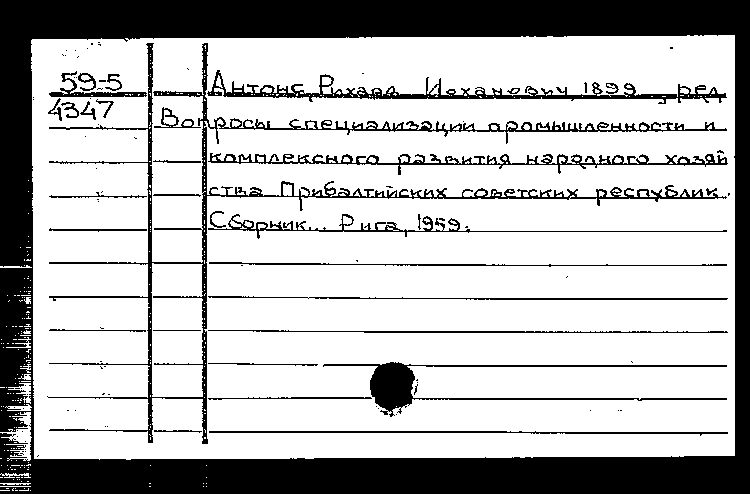 59-5 Антонс, Рихард Иоханович, 1899 , ред.
4347 Вопросы специализации промышленности и
комплексного развития народного хозяй
ства Прибалтийских советских республик.
Сборник... Рига, 1959.